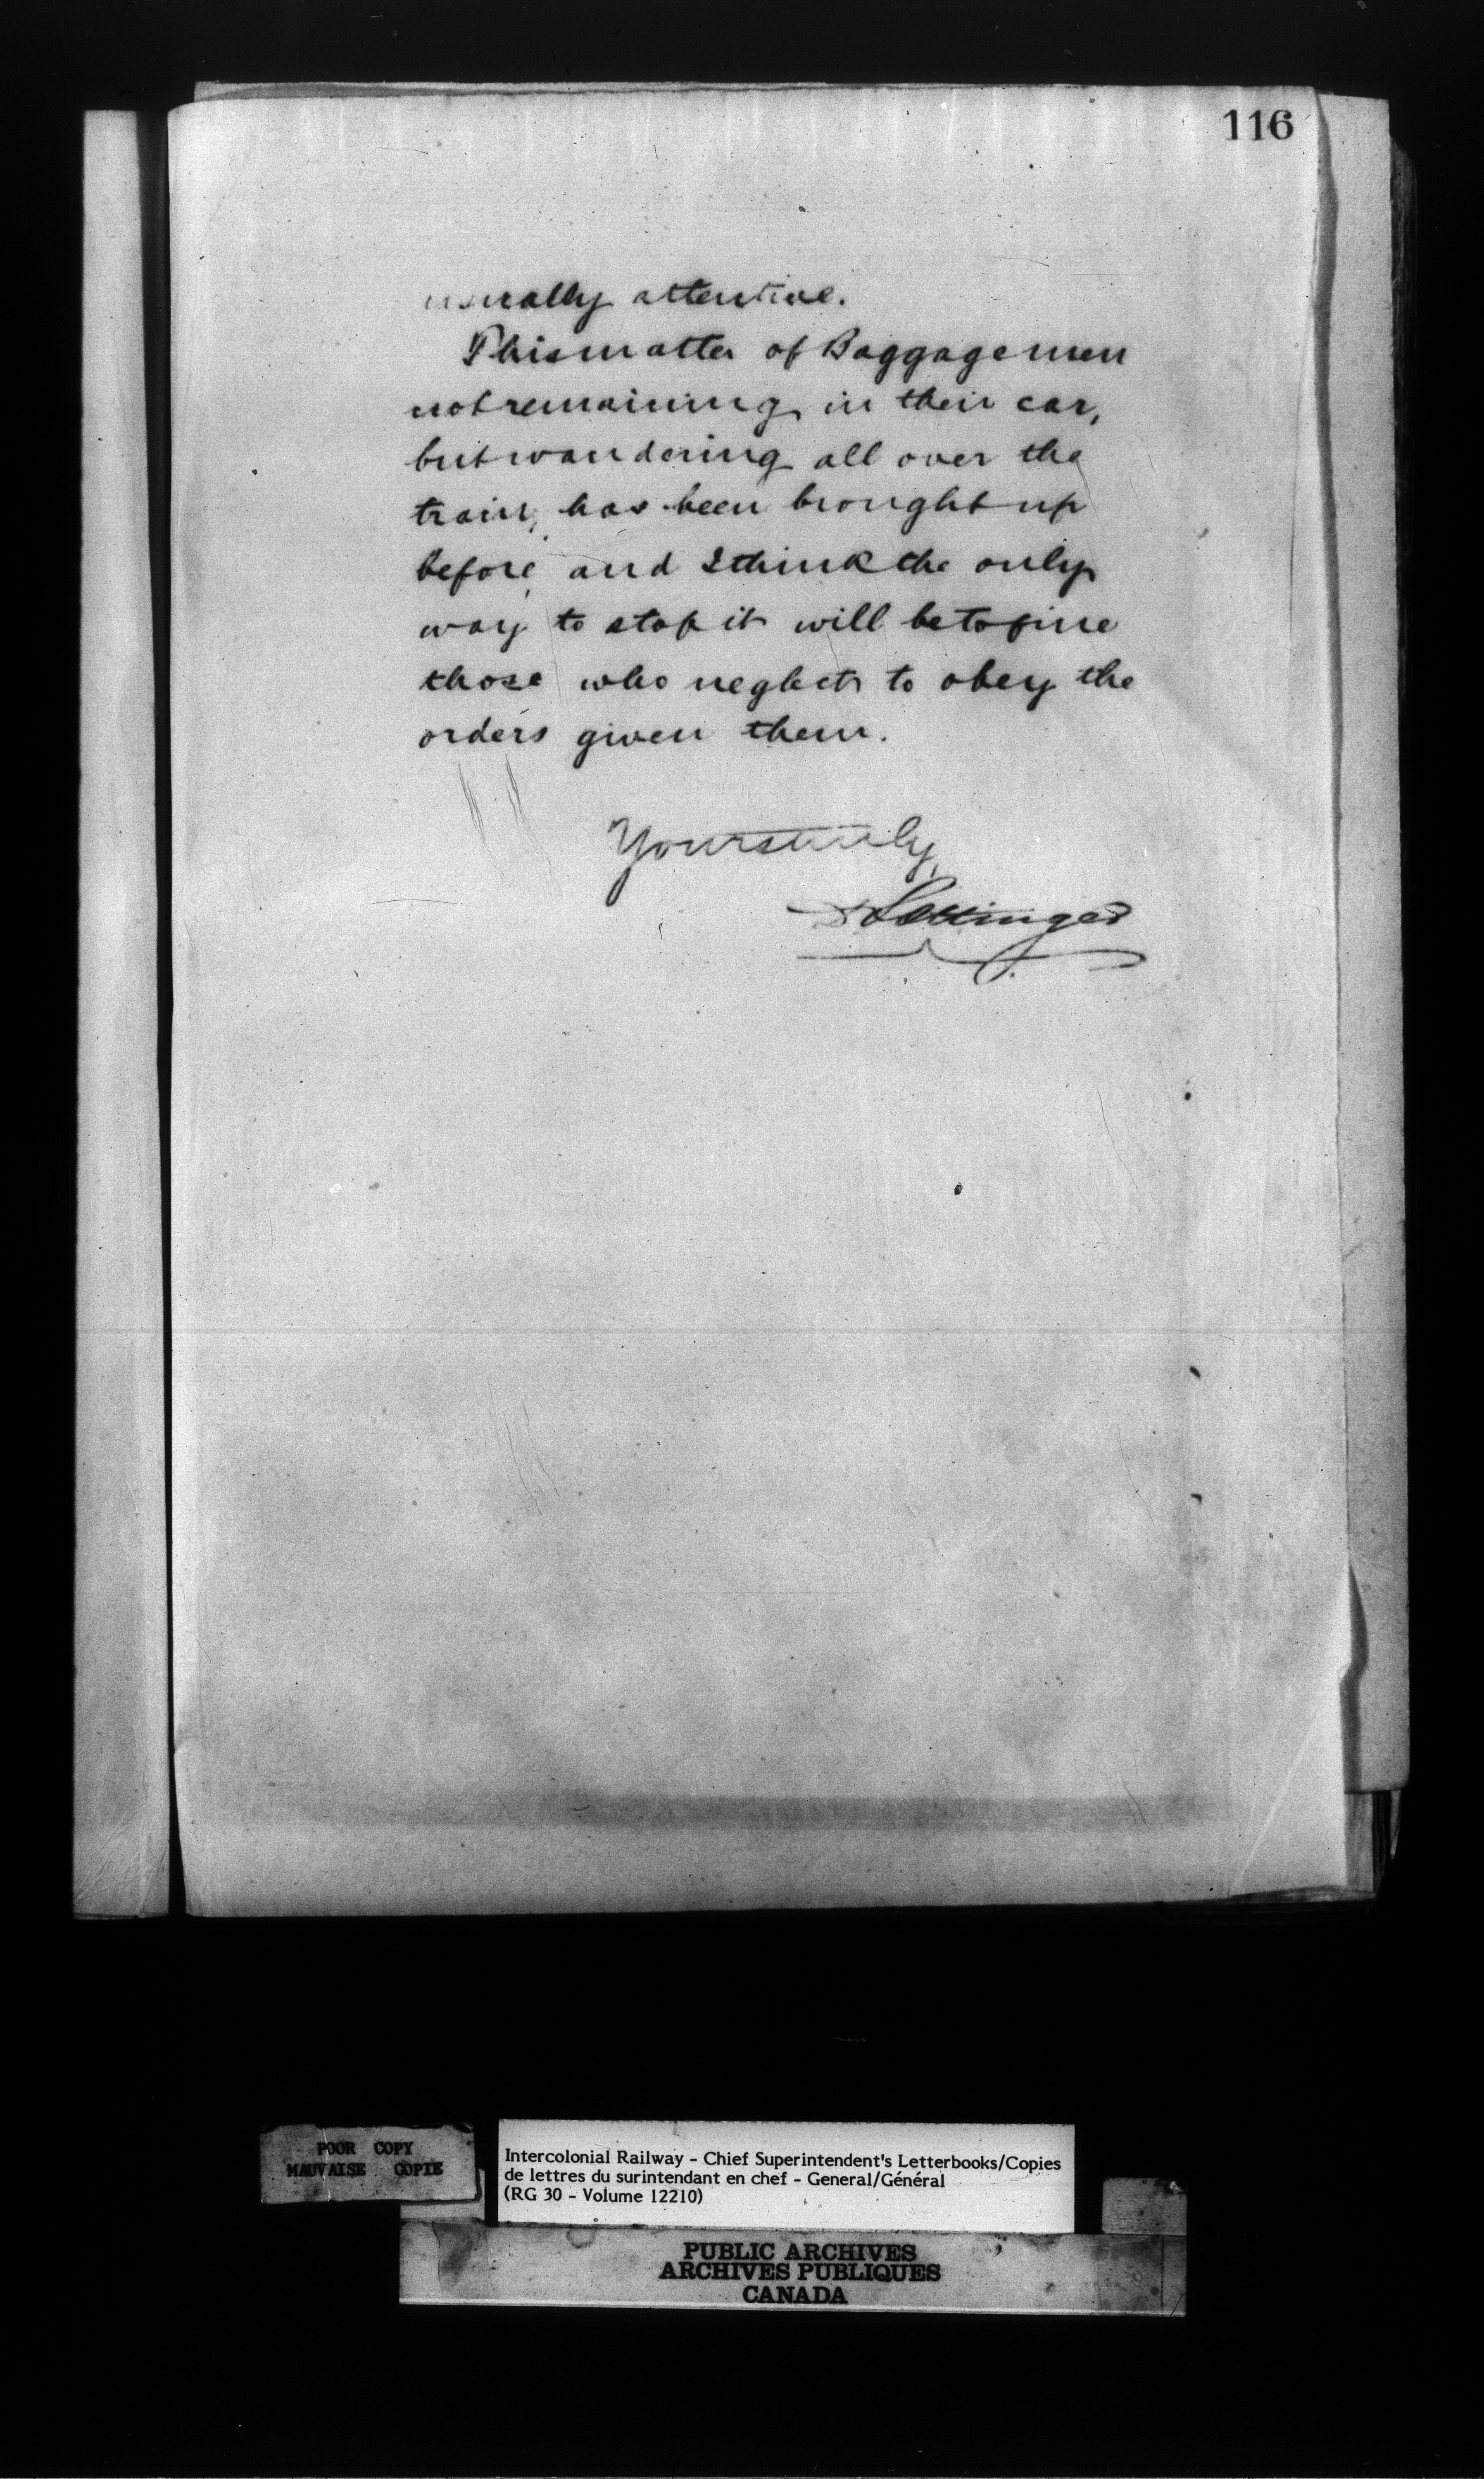 116
usually attentive.
This matter of Baggagemen
not remaining in their car,
but wandering all over the
train, has been brought up
before, and I think the only
way to stop it will be to fine
those who neglect to obey the
orders given them.
Yours truly,
D Pottinger
POOR COPY
MAUVAISE COPIE
Intercolonial Railway - Chief Superintendent's Letterbooks/Copies
de lettres du surintendant en chef - General/Général
(RG 30 - Volume 12210)
PUBLIC ARCHIVES
ARCHIVES PUBLIQUES
CANADA